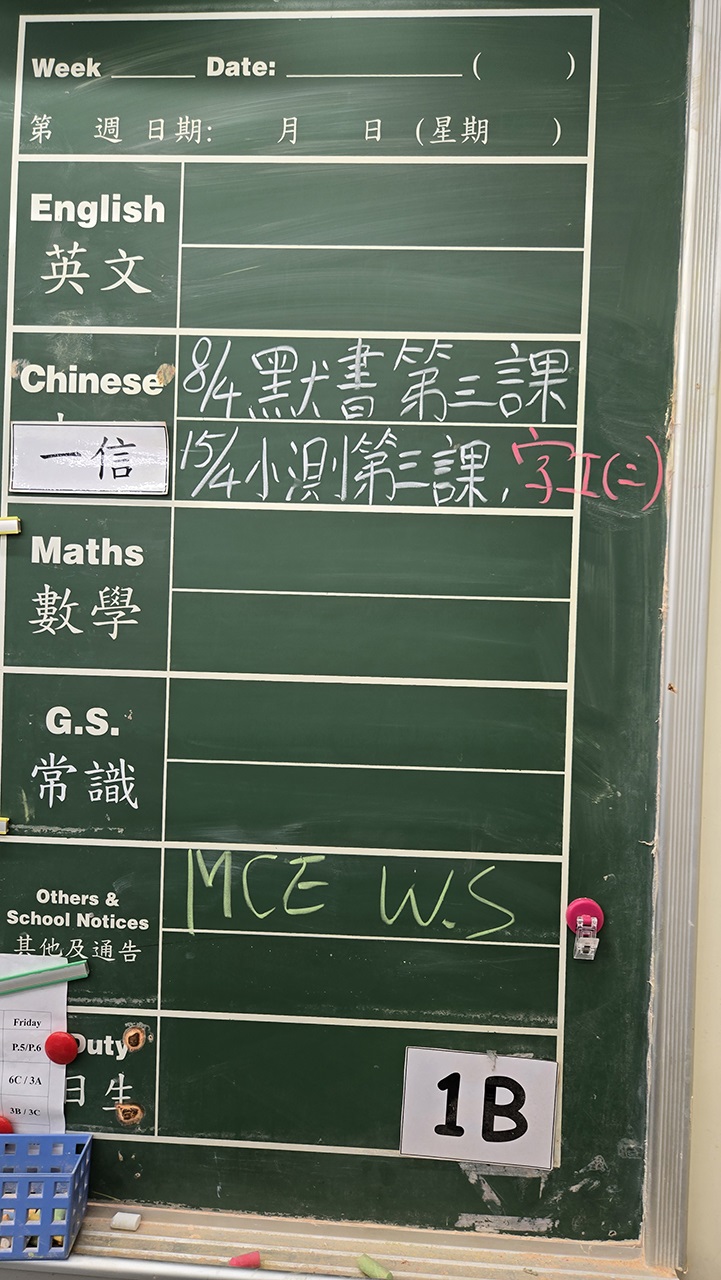 Week ____ Date: ________ ( )
第 週 日期: 月 日 (星期 )
English
英文
Chinese
8/4 默書 第三課
一信
15/4 小測第三課, 字工(二)
Maths
數學
G.S.
常識
Others &
School Notices
其他及通告
MCE W.S
Duty
日生
1B
Friday
P.5/P.6
6C / 3A
3B / 3C